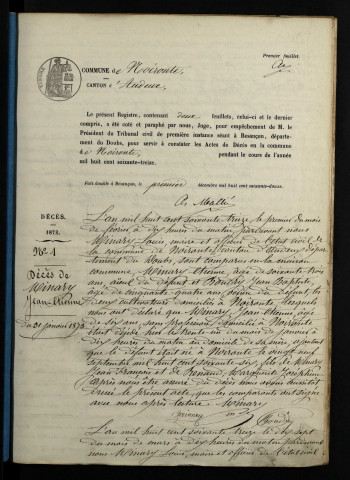 Premier feuillet
COMMUNE de Noironte,
CANTON d'Audeux
Le présent Registre, contenant deux feuillets, celui-ci et le dernier
compris, a été coté et paraphé par nous, Juge, pour empêchement de M. le
Président du Tribunal civil de première instance séant à Besançon, département
du Doubs, pour servir à constater les Actes de Décès en la commune
de Noironte, pendant le cours de l'année
mil huit cent soixante-treize.
Fait double à Besançon, le premier décembre mil huit cent soixante-douze.
DÉCÈS.
1873.
N° 1
Décès de
Winary
Jean Etienne
du 31 janvier 1873
L'an mil huit cent soixante treize le premier du mois
de février à dix heures du matin, pardevant nous
Winary Louis maire et officier de l'état civil de
la commune de Noironte, canton d'Audeux, département
du Doubs, sont comparus en la maison
commune Winary Etienne, âgé de soixante trois
ans, aïeul du défunt et Jean Baptiste,
âgé de cinquante quatre ans, du défunt les
deux cultivateurs domiciliés à Noironte, lesquels
nous ont déclaré que Winary Jean Etienne, âgé
de six ans, sans profession, domicilié à Noironte
est décédé hier trente un du mois de janvier à
dix heures du matin au domicile de sa mère, ajoutant
que le défunt était né à Noironte le vingt neuf
Septembre mil huit cent soixante six, fils de Winary
Jean François et de Marguerite Joséphine
après nous être assuré du décès nous avons aussitôt
dressé le présent acte, que les comparants ont signé
avec nous après lecture Winary
L'an mil huit cent soixante treize le dix sept
du mois de mars à dix heures du matin pardevant
nous Winary Louis, maire et officier de l'état civil